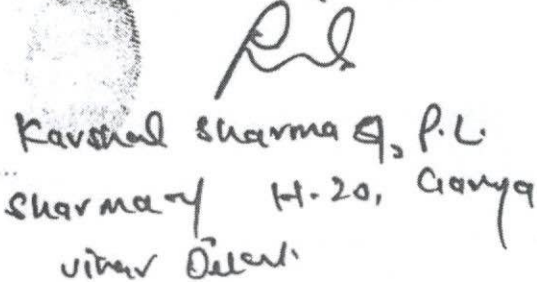 Kaushal Sharma S, P.L.
Sharma H-20, Ganga
Vihar Delhi.